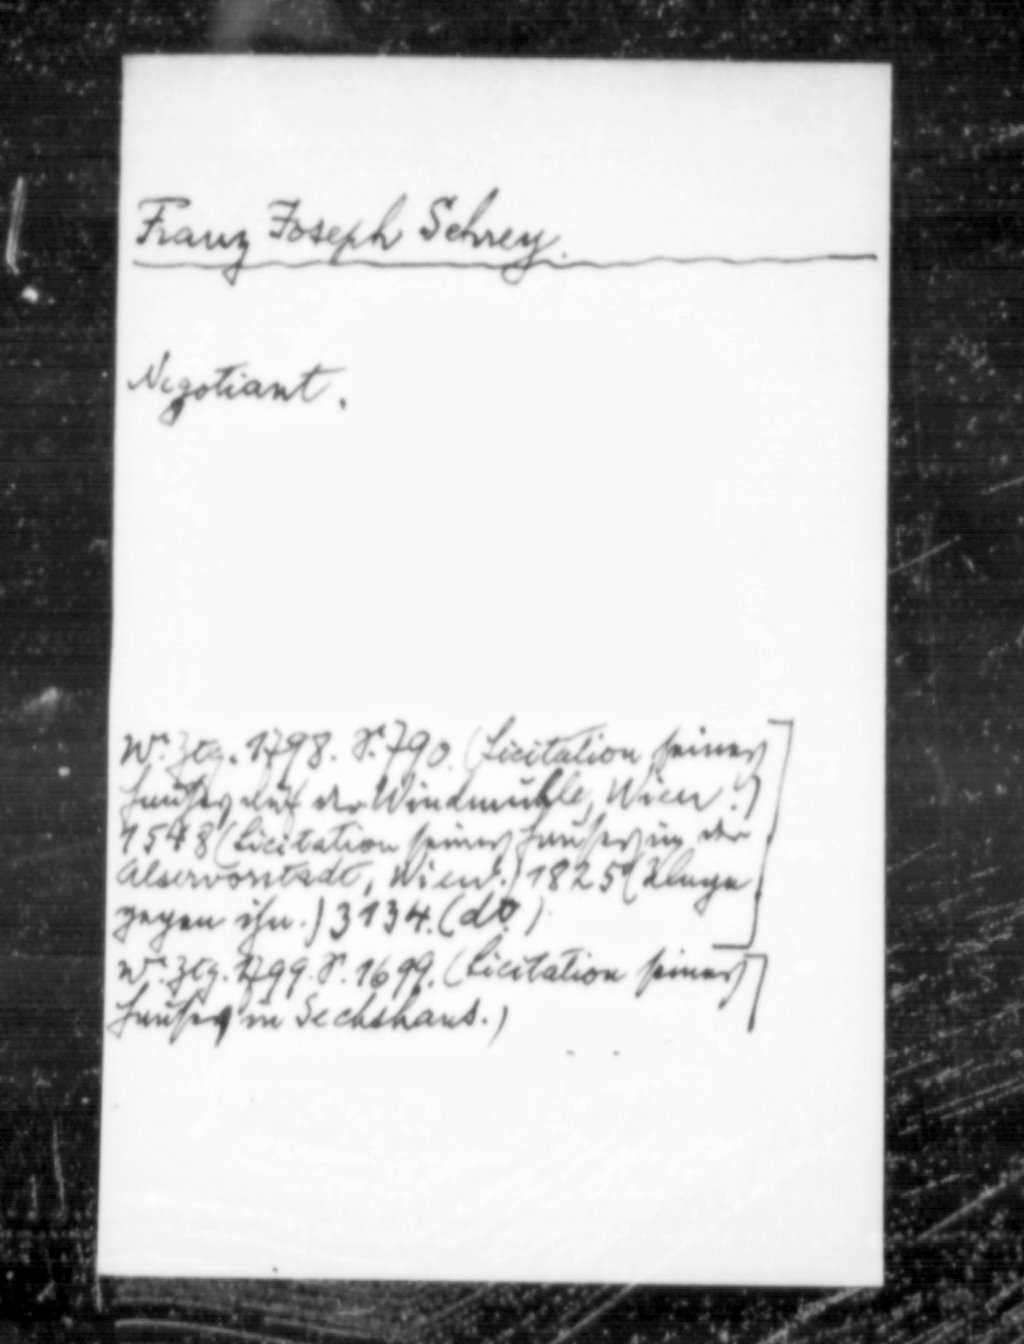 Franz Joseph Schrey.
Negotiant.
W. Ztg. 1798. S. 790. (Licitation seines
Hauses auf der Windmühle, Wien.)
1548 (Licitation seines Hauses in der
Alservorstadt, Wien.) 1825 (Klage
gegen ihn.) 3134. (do).
W. Ztg. 1799. S. 1699. (Licitation seines
Hauses in Sechshaus.)